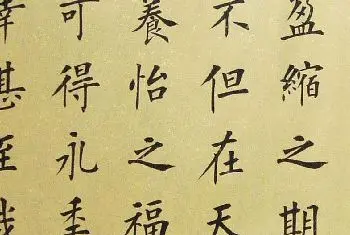 盈縮之期
不但在天
養怡之福
可得永年
幸甚至哉